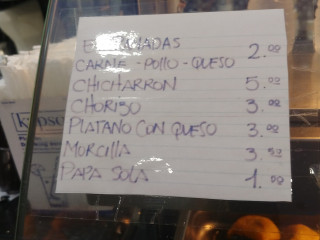 CARNE - POLLO - QUESO 2.00
CHICHARRON 5.00
CHORIZO 3.00
PLATANO CON QUESO 3.00
MORCILLA 3.50
PAPA SOLA 1.00